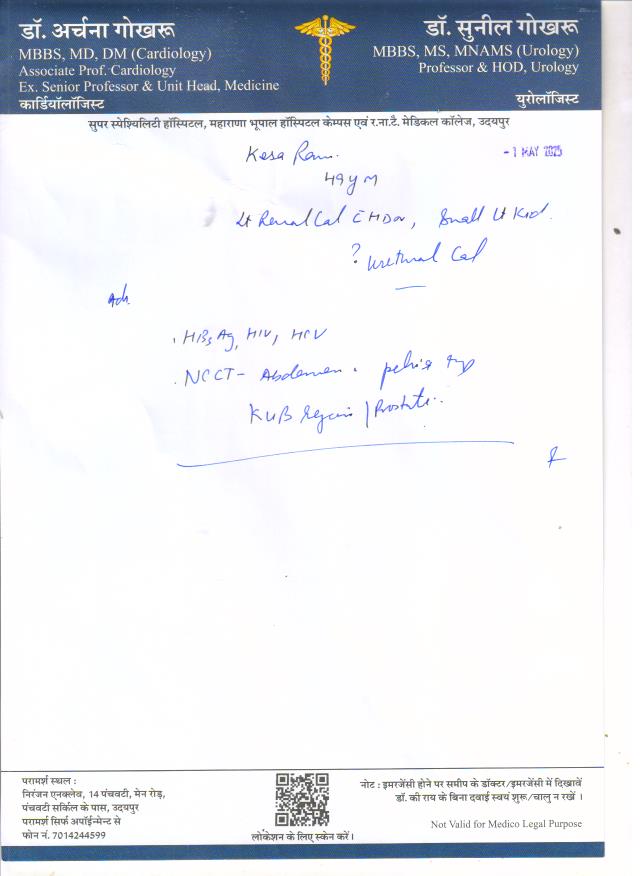 डॉ. अर्चना गोखरू
MBBS, MD, DM (Cardiology)
Associate Prof. Cardiology
Ex. Senior Professor & Unit Head, Medicine
कार्डियॉलॉजिस्ट
डॉ. सुनील गोखरू
MBBS, MS, MNAMS (Urology)
Professor & HOD, Urology
युरोलॉजिस्ट
सुपर स्पेश्यिलिटी हॉस्पिटल, महाराणा भूपाल हॉस्पिटल केम्पस एवं र.ना.टै. मेडिकल कॉलेज, उदयपुर
Kesa Ram.
- 1 MAY 2025
49 y M
Lt Renal Cal C HDN, Small Lt Kid.
? Urethral Cal
Adv.
. HBsAg, HIV, HCV
. NCCT - Abdomen . pelvis
KUB Region / Prostate..
परामर्श स्थल :
निरंजन एनक्लेव, 14 पंचवटी, मेन रोड़,
पंचवटी सर्किल के पास, उदयपुर
परामर्श सिर्फ अपॉईन्मेन्ट से
फोन नं. 7014244599
लोकेशन के लिए स्केन करें।
नोट : इमरजेंसी होने पर समीप के डॉक्टर/इमरजेंसी में दिखावें
डॉ. की राय के बिना दवाई स्वयं शुरू/चालु न रखें ।
Not Valid for Medico Legal Purpose